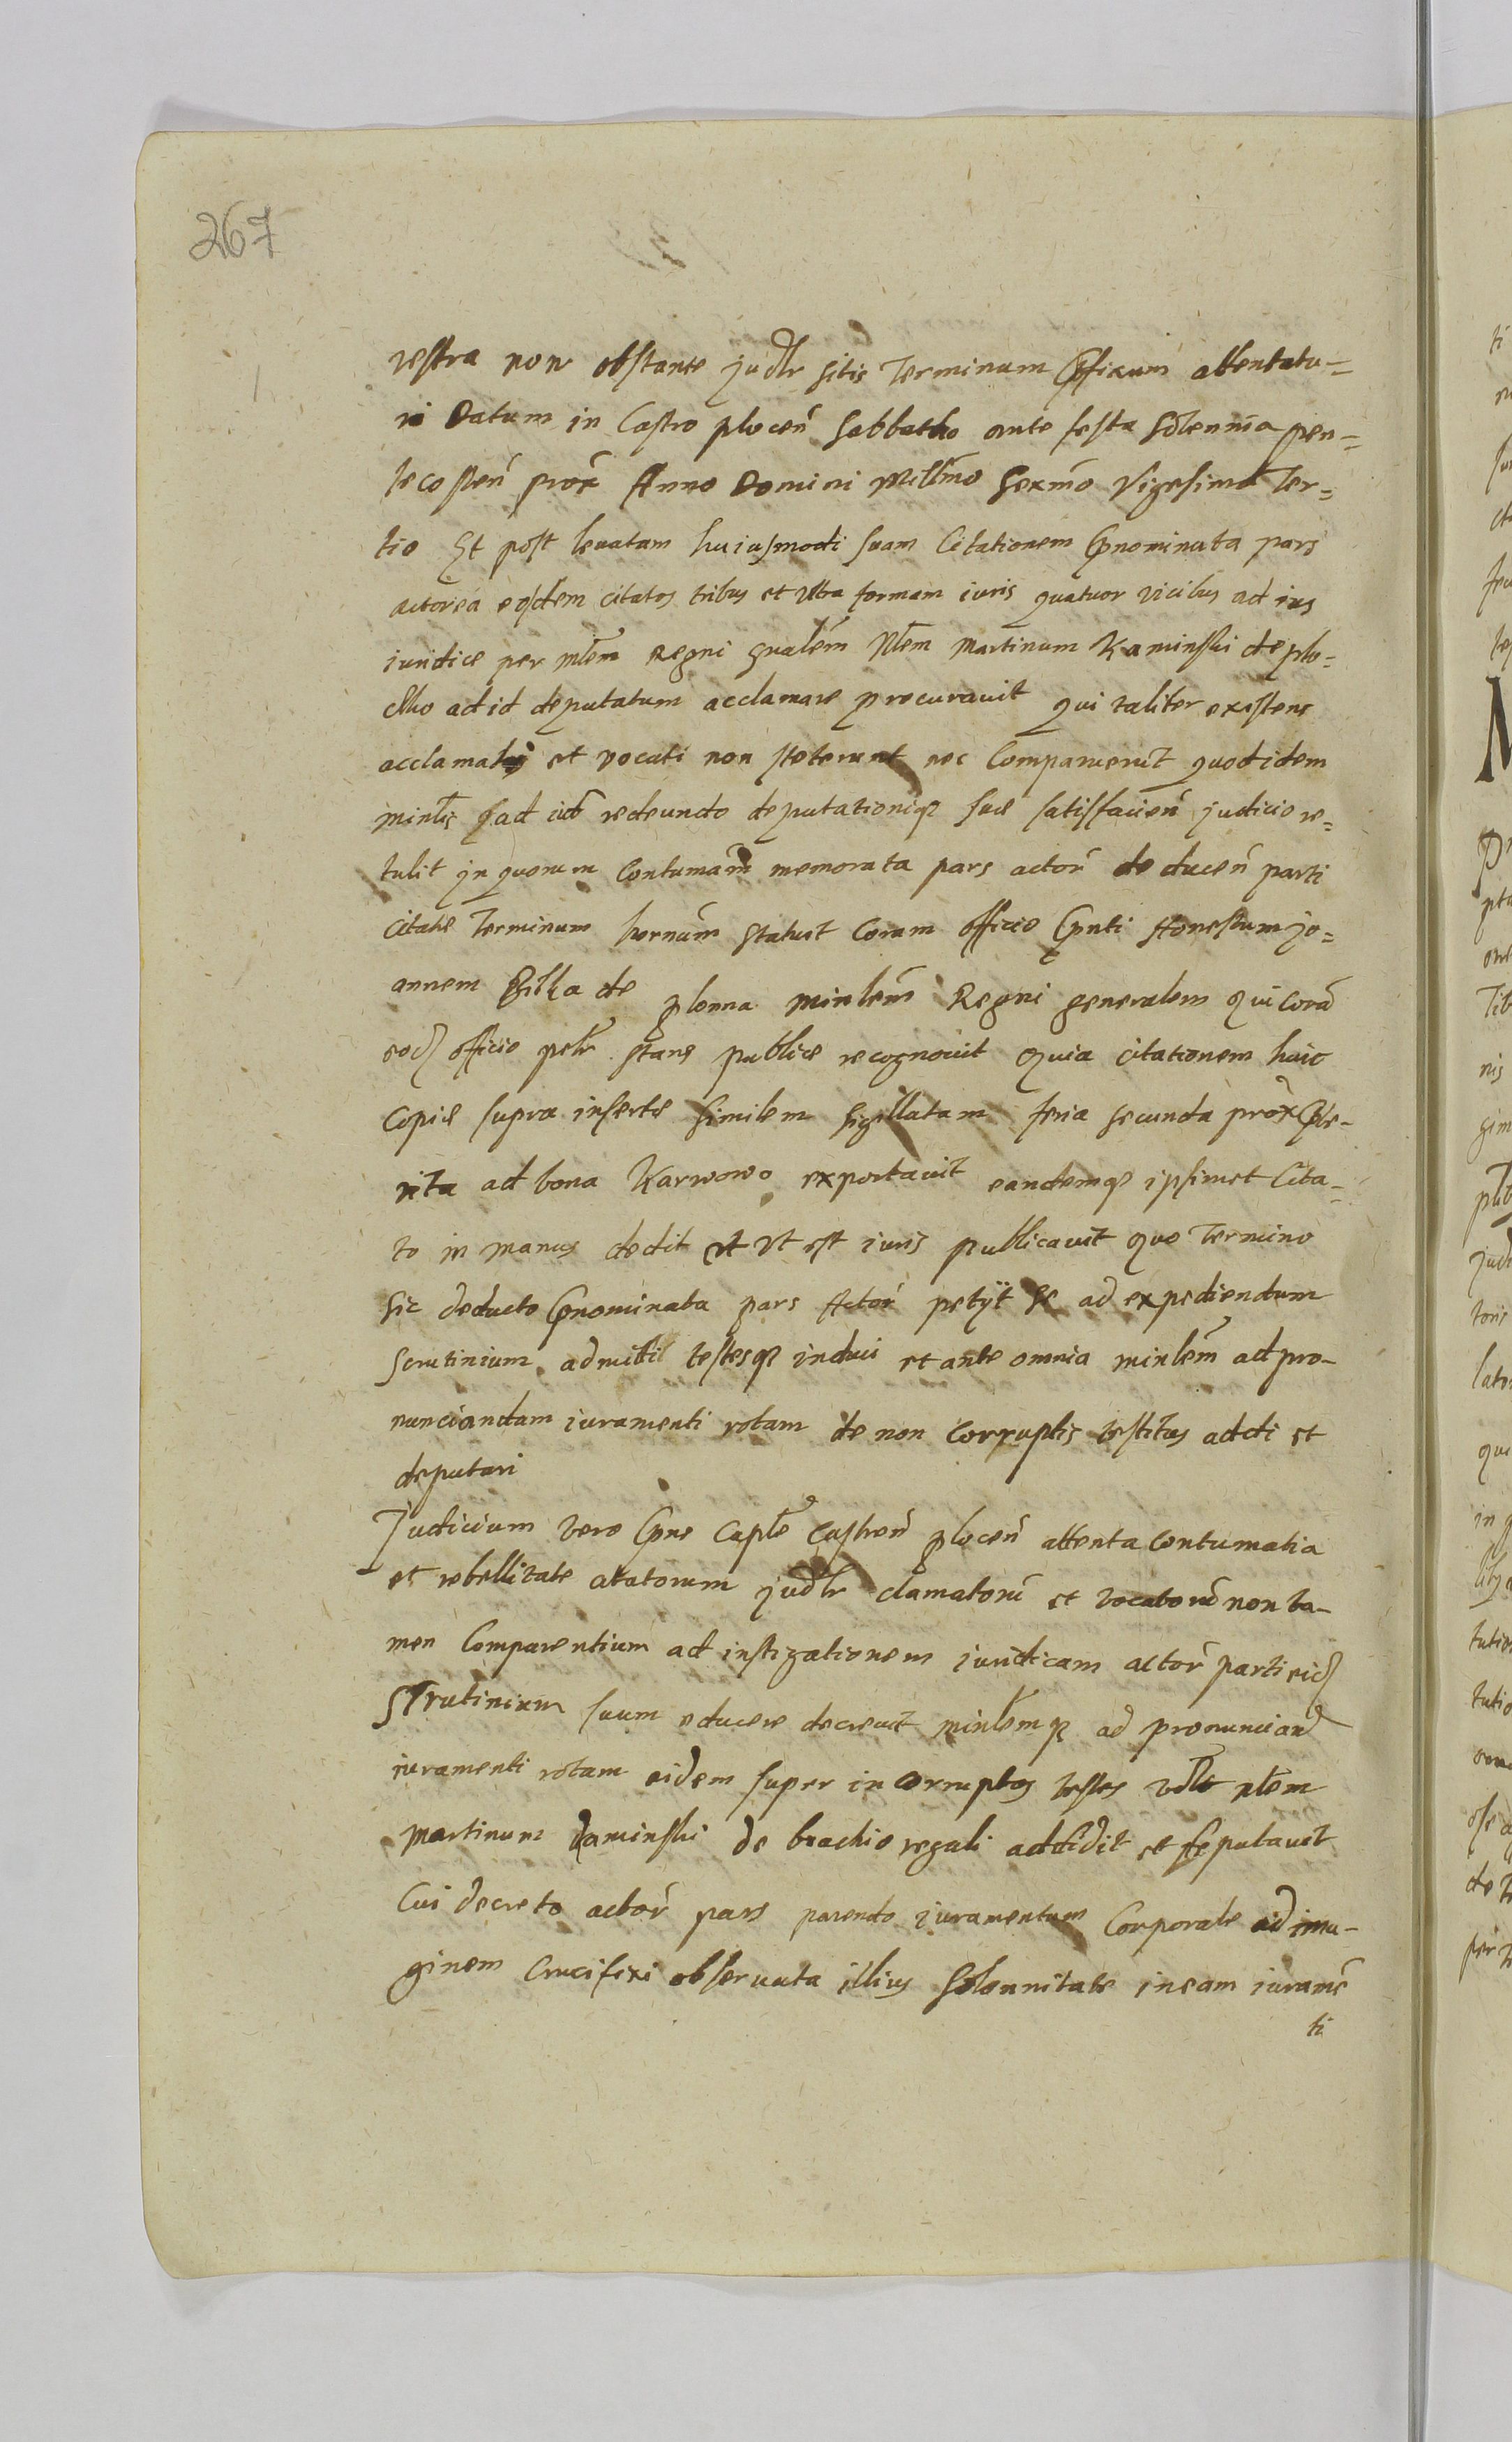 267
vestra non obstante judlr sitis Terminum pfixum attentatu=
ri Datum in Castro plocen Sabbatho ante festa Solennia pen=
tecosten prox Anno Domini Millmo Sexmo Vigesimo Ter=
tio Et post leuatam huiusmodi suam Citationem pnominata pars
actorea eosdem citatos tribus et Vltra formam iuris quatuor vicibus ad ius
iuridice per mlem Regni gnalem Martinum Kaminski de plo=
ad id deputatum acclamare procurauit qui taliter existens
acclamati et vocati non steterunt nec Comparuerut quod idem
minlis ad iud redeundo deputationiq suae satisfacien judicio re=
tulit in quorum Contumam memorata pars actor deducen parti
citatae Terminum hornum Statuit Coram officio pnti Honestum jo=
annem de plonna minlem Regni generalem qui cora
eod officio pslr stans publice recognouit quia citationem huic
copiae supra insertae Similem Sigillatam feria secunda prox pte=
rita ad bona Karwowo exportauit eandemq ipsimet Cita=
to in manus dedit et vt est iuris publicauit quo Termino
Sic deducto pnominata pars Actor petijt se ad expediendum
Scrutinium admitti testesq induci et ante omnia minlem ad pro=
nunciandam iuramenti rotam de non corruptis testibus addi et
deputari
Judicium vero pns Caple Castren plocen attenta contumatia
et rebellitate citatorum judlr clamatoru et vocatoru non ta=
men Comparentium ad instigationem iuridicam actor parti eid
Strutinium suum educere decreuit minlemq ad pronunciand
iuramenti rotam eidem super incorruptos testes
Martinum Kaminski de brachio regali addidit et deputauit
Cui decreto actor pars parendo iuramentum Corporale ad ima=
ginem Crucifixi obseruata illius Solennitate in eam iurame
ti